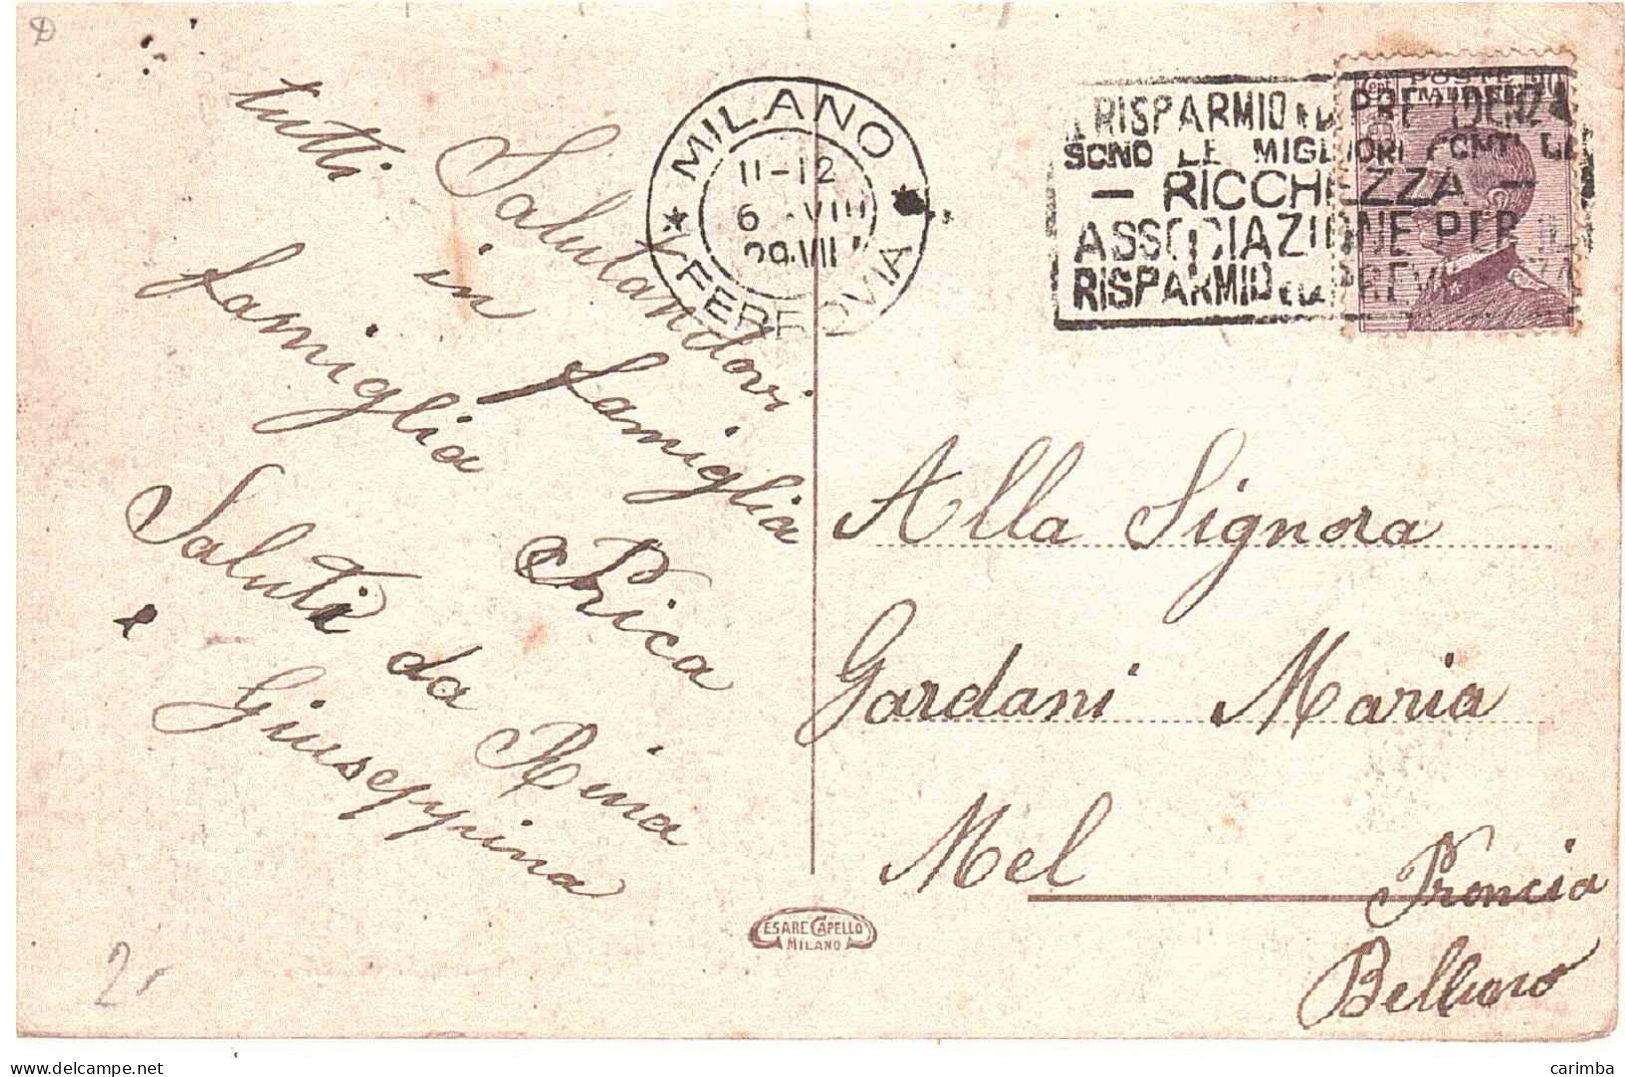 Salutandovi
tutti in famiglia
famiglia Erica
Saluti da Rina
e Giuseppina
MILANO
11-12
6 VIII
29 VII
FERROVIA
IL RISPARMIO E LA PREVIDENZA
SONO LE MIGLIORI FONTI DI
— RICCHEZZA —
ASSOCIAZIONE PER IL
RISPARMIO E LA PREVIDENZA
POSTE
ITALIANE
Alla Signora
Gardani Maria
Mel
Proncia
Belluno
CESARE CAPELLO
MILANO
2
carimba